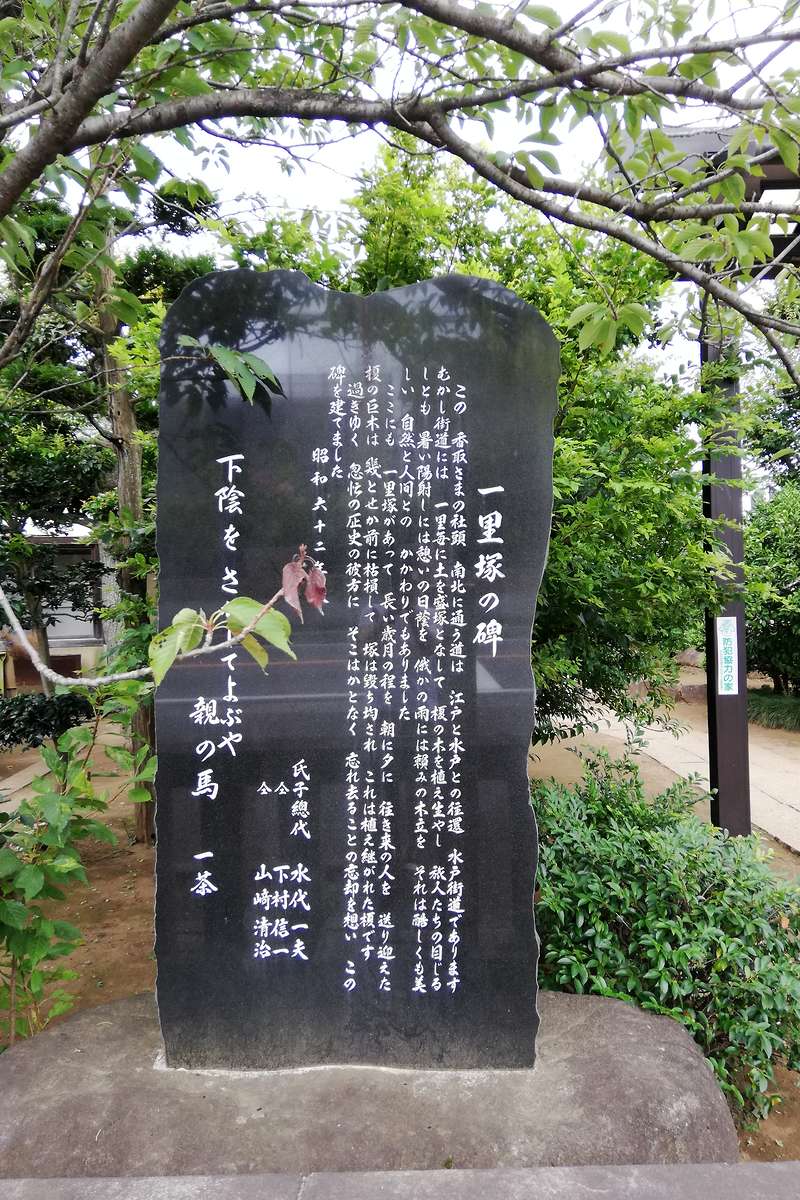 一里塚の碑
この 香取さまの社頭 南北に通う道は 江戸と水戸との往還 水戸街道であります
むかし街道には 一里毎に土を盛塚となして 榎の木を植え生やし 旅人たちの目じる
しとも 暑い陽射しには憩いの日蔭を 俄かの雨には頼みの木立を それは酷しくも美
しい 自然と人間との かかわりでもありました
ここにも 一里塚があって 長い歳月の程を 朝に夕に 往き来の人を 送り迎えた
榎の巨木は 幾とせか前に枯損して 塚は毀ち均され これは植え継がれた榎です
過ぎゆく 忽忙の歴史の彼方に そこはかとなく 忘れ去ることの忘却を想い この
碑を建てました
昭和六十二
氏子總代 水代一夫
仝 下村信一
仝 山﨑清治
下陰を さ てよぶや
親の馬 一茶
防犯協力の家